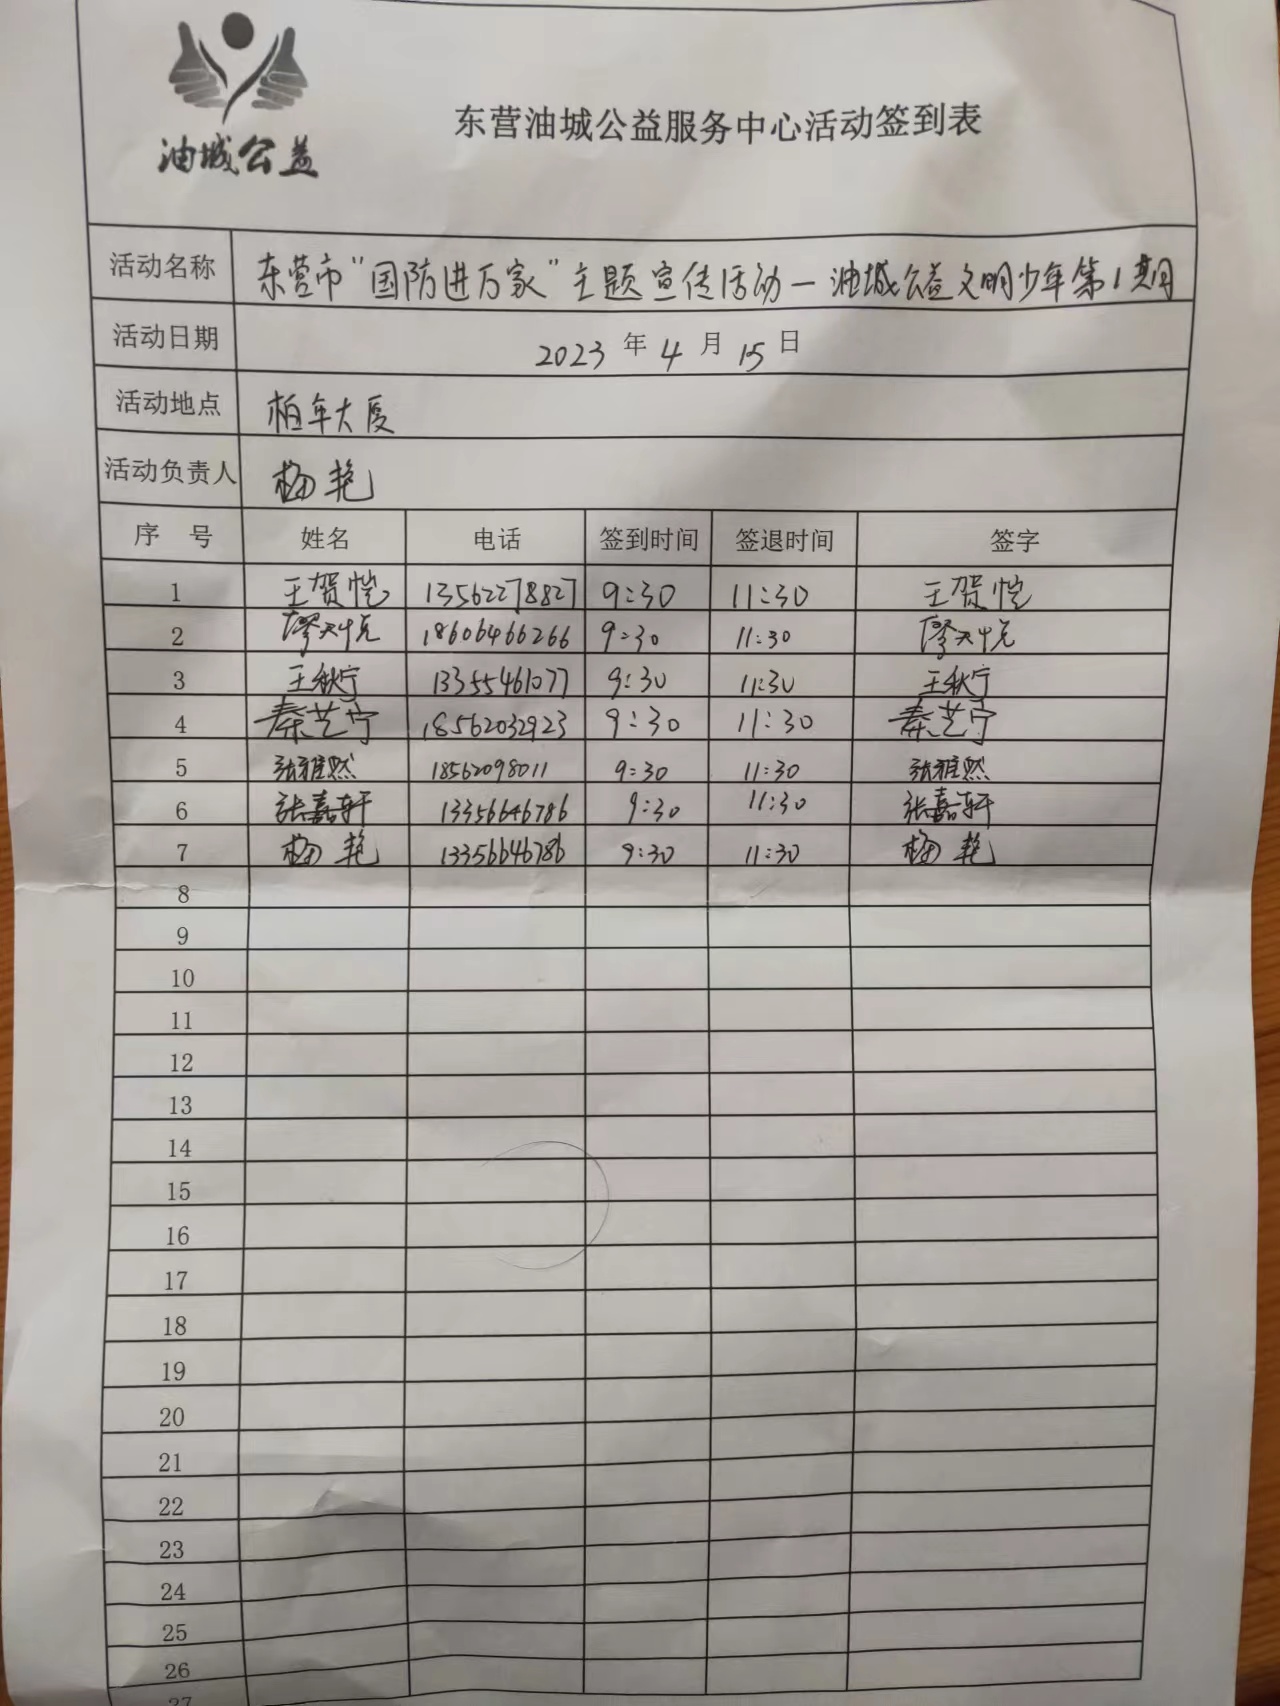 油城公益
东营油城公益服务中心活动签到表
活动名称 东营市“国防进万家”主题宣传活动—油城公益文明少年第1期
活动日期 2023 年 4 月 15 日
活动地点 柏年大厦
活动负责人 梅艳
序 号 姓名 电话 签到时间 签退时间 签字
1 王贺恺 13562278827 9:30 11:30 王贺恺
2 廖天悦 18606466266 9:30 11:30 廖天悦
3 王秋宁 13355461077 9:30 11:30 王秋宁
4 秦艺宁 18562032923 9:30 11:30 秦艺宁
5 张雅然 18562098011 9:30 11:30 张雅然
6 张嘉轩 13356646786 9:30 11:30 张嘉轩
7 梅艳 13356646786 9:30 11:30 梅艳
8
9
10
11
12
13
14
15
16
17
18
19
20
21
22
23
24
25
26
27